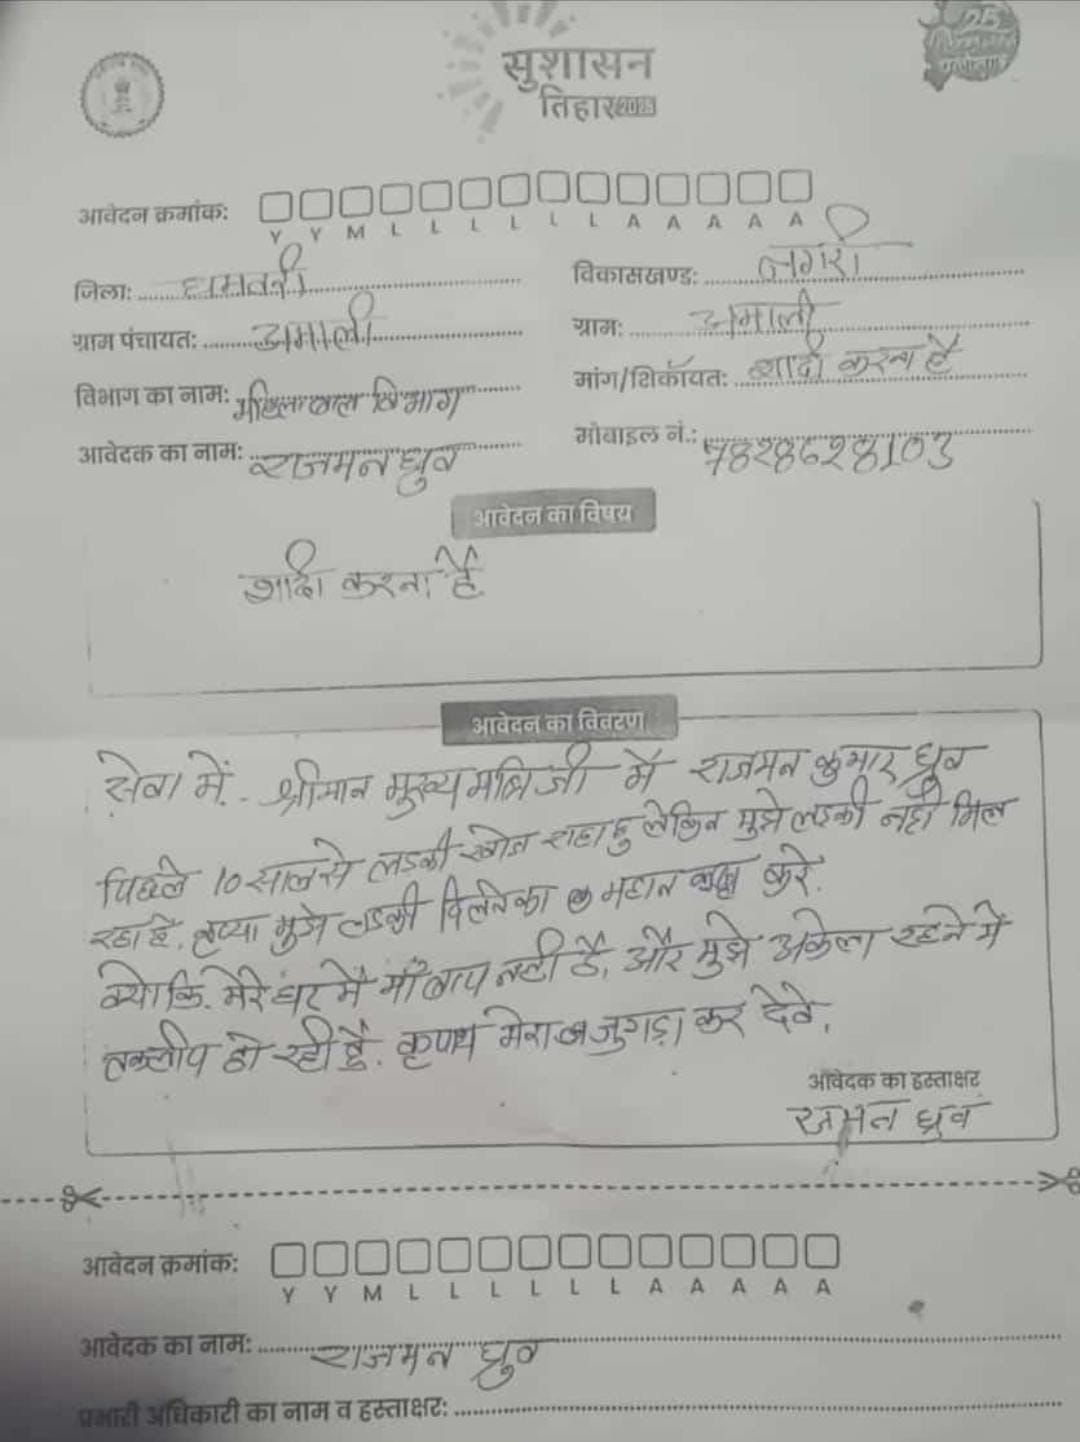 सुशासन
तिहार 2025
25
आवेदन क्रमांक:
Y Y M L L L L L L A A A A A
जिला: धमतरी
विकासखण्ड: नगरी
ग्राम पंचायत: अमाली
ग्राम: अमाली
विभाग का नाम: महिला बाल विभाग
मांग/शिकायत: शादी करना है
आवेदक का नाम: राजमन ध्रुव
मोबाइल नं.:
आवेदन का विषय
शादी करना है
आवेदन का विवरण
सेवा में - श्रीमान मुख्यमंत्रि जी मैं राजमन कुमार ध्रुव
पिछले 10 साल से लडकी खोज राहा हु लेकिन मुझे लडकी नही मिल
रहा है. मुझे लडकी दिलनेका महान करे.
क्योकि. मेरे घर मैं माँ बाप नही है, और मुझे अकेला रहने में
तकलीप हो रही है. मेरा जुगाड़ा कर देवे.
आवेदक का हस्ताक्षर
राजमन ध्रुव
आवेदन क्रमांक:
Y Y M L L L L L L A A A A A
आवेदक का नाम: राजमन ध्रुव
प्रभारी अधिकारी का नाम व हस्ताक्षर: